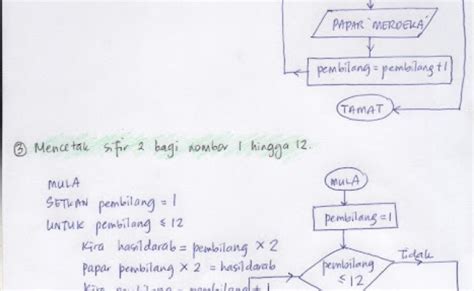 PAPAR 'MERDEKA'
pembilang = pembilang + 1
TAMAT
③ Mencetak sifir 2 bagi nombor 1 hingga 12.
MULA
SETKAN pembilang = 1
UNTUK pembilang ≤ 12
Kira hasildarab = pembilang × 2
Papar pembilang × 2 = hasildarab
Kira pembilang = pembilang + 1
MULA
pembilang = 1
pembilang
≤ 12
Tidak